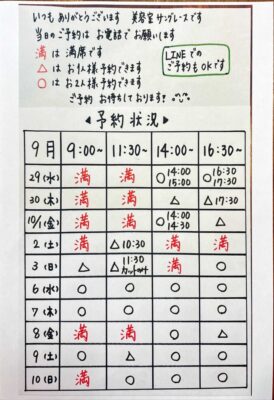 いつも ありがとうございます 美容室 サングレースです
当日のご予約は お電話で お願いします
満 は 満席です
△ は お1人様 予約できます
○ は お2人様 予約できます
LINEでの
ご予約もOKです
ご予約 お待ちしております!
◀予約状況▶
9月 9:00~ 11:30~ 14:00~ 16:30~
29(水) 満 満 ○14:00 15:00 ○16:30 17:30
30(木) 満 満 満 △17:30
10/1(金) 満 満 ○14:00 14:30 △
2(土) 満 △10:30 満 満
3(日) △ △11:30 カットのみ 満 ○
6(水) ○ ○ ○ ○
7(木) ○ ○ ○ ○
8(金) 満 満 ○ △
9(土) ○ △ ○ ○
10(日) 満 ○ ○ ○